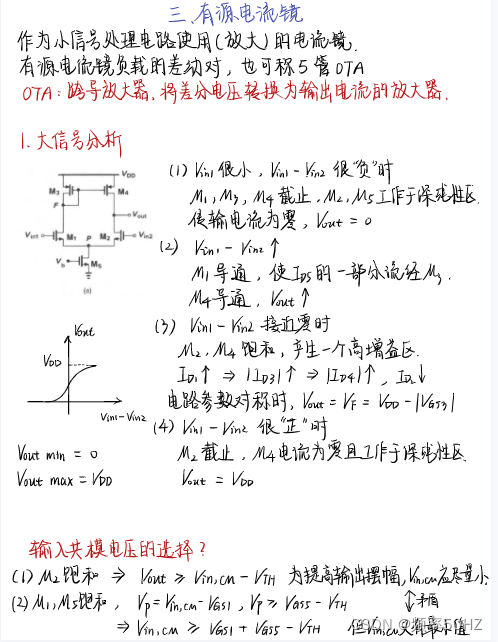 三.有源电流镜
作为小信号处理电路使用(放大)的电流镜.
有源电流镜负载的差动对, 也可称5管OTA
OTA:跨导放大器.将差分电压转换为输出电流的放大器.
1.大信号分析
VDD
M3
M4
F
Vout
Vin1
M1
P
M2
Vin2
Vb
M5
(a)
(1) Vin1很小, Vin1-Vin2很"负"时
M1, M3, M4截止, M2, M5工作于深线性区.
传输电流为零, Vout = 0
(2) Vin1-Vin2↑
M1导通, 使ID5的一部分流经M3.
M4导通, Vout↑
(3) Vin1-Vin2接近零时
M2, M4饱和, 产生一个高增益区.
ID1↑ ⇒ |ID3|↑ ⇒ |ID4|↑, ID2↓
电路参数对称时, Vout = VF = VDD - |VGS3|
(4) Vin1-Vin2很"正"时
M2截止, M4电流为零且工作于深线性区.
Vout = VDD
Vout
VDD
Vin1-Vin2
Vout min = 0
Vout max = VDD
输入共模电压的选择?
(1) M2饱和 ⇒ Vout ≥ Vin,CM - VTH 为提高输出摆幅, Vin,CM应尽量小.
(2) M1, M5饱和, Vp = Vin,CM - VGS1, Vp ≥ VGS5 - VTH ↕矛盾
⇒ Vin,CM ≥ VGS1 + VGS5 - VTH 但Vin,CM又有最小值